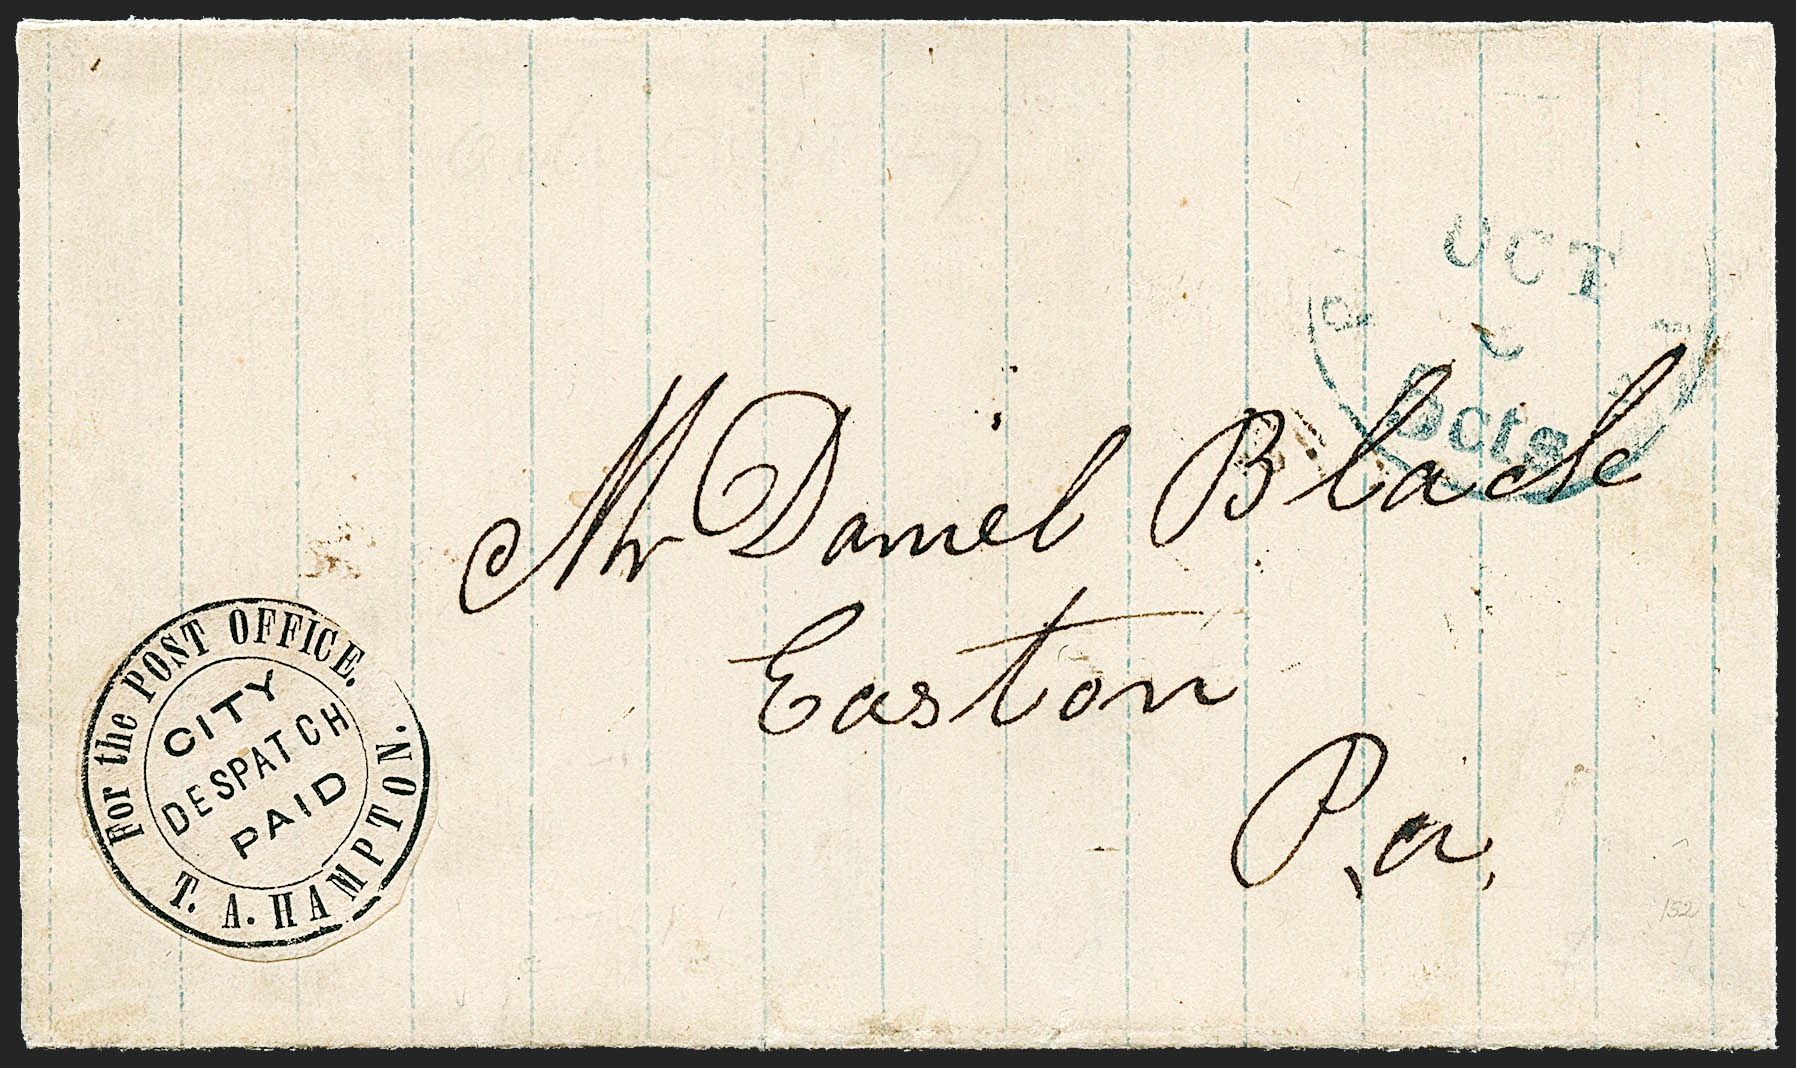 OCT
5cts
Mr Daniel Black
Easton
Pa,
For the POST OFFICE.
CITY
DESPATCH
PAID
T. A. HAMPTON.
152